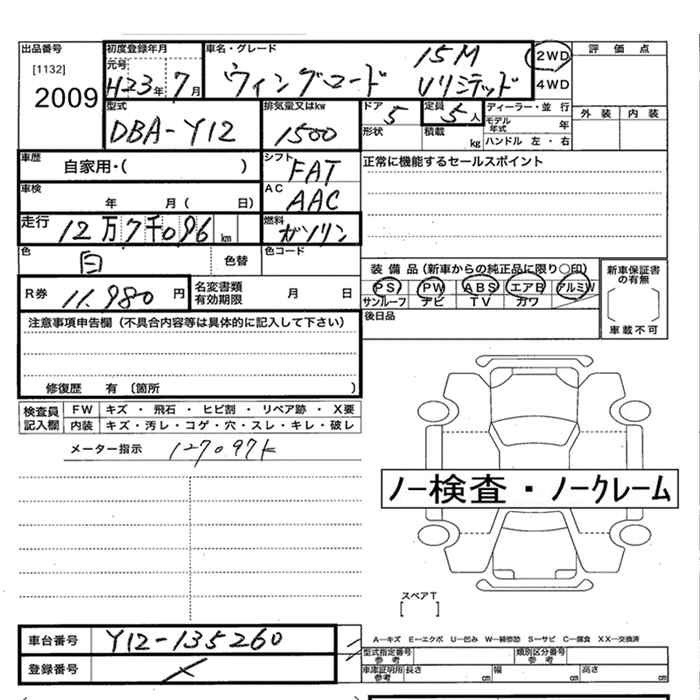 出品番号 初度登録年月 車名・グレード 15M 2WD 評価点
[1132] 元号
2009 H23年 7月 ウィングロード Vリミテッド 4WD
型式 排気量又はkw ドア 定員 ディーラー・並行 外装 内装
DBA-Y12 1500 5 5人 モデル年式 年
形状 積載 kg ハンドル 左・右
車歴 自家用・( ) シフト FAT 正常に機能するセールスポイント
車検 年 月 ( 日) AC AAC
走行 12万7千096km 燃料 ガソリン
色 白 色替 色コード
装備品(新車からの純正品に限り○印) 新車保証書の有無
R券 11,980円 名変書類有効期限 月 日 PS PW ABS エアB アルミW
サンルーフ ナビ TV カワ
注意事項申告欄(不具合内容等は具体的に記入して下さい) 後日品 車載不可
修復歴 有 〔箇所 )
検査員記入欄 FW キズ・飛石・ヒビ割・リペア跡・X要
内装 キズ・汚レ・コゲ・穴・スレ・キレ・破レ
メーター指示 127097k
ノー検査・ノークレーム
スペアT
[ ]
車台番号 Y12-135260 A―キズ E―エクボ U―凹み W―補修跡 S―サビ C―腐食 XX―交換済
型式指定番号 参考 類別区分番号 参考
登録番号 車庫証明用 参考 長さ cm 幅 cm 高さ cm